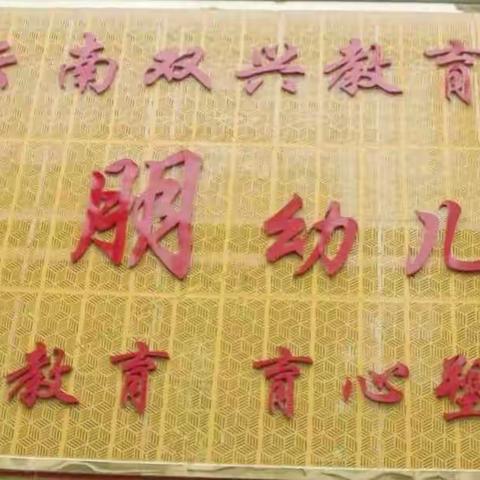 云南双兴教育
朋幼儿
教育 育心塑